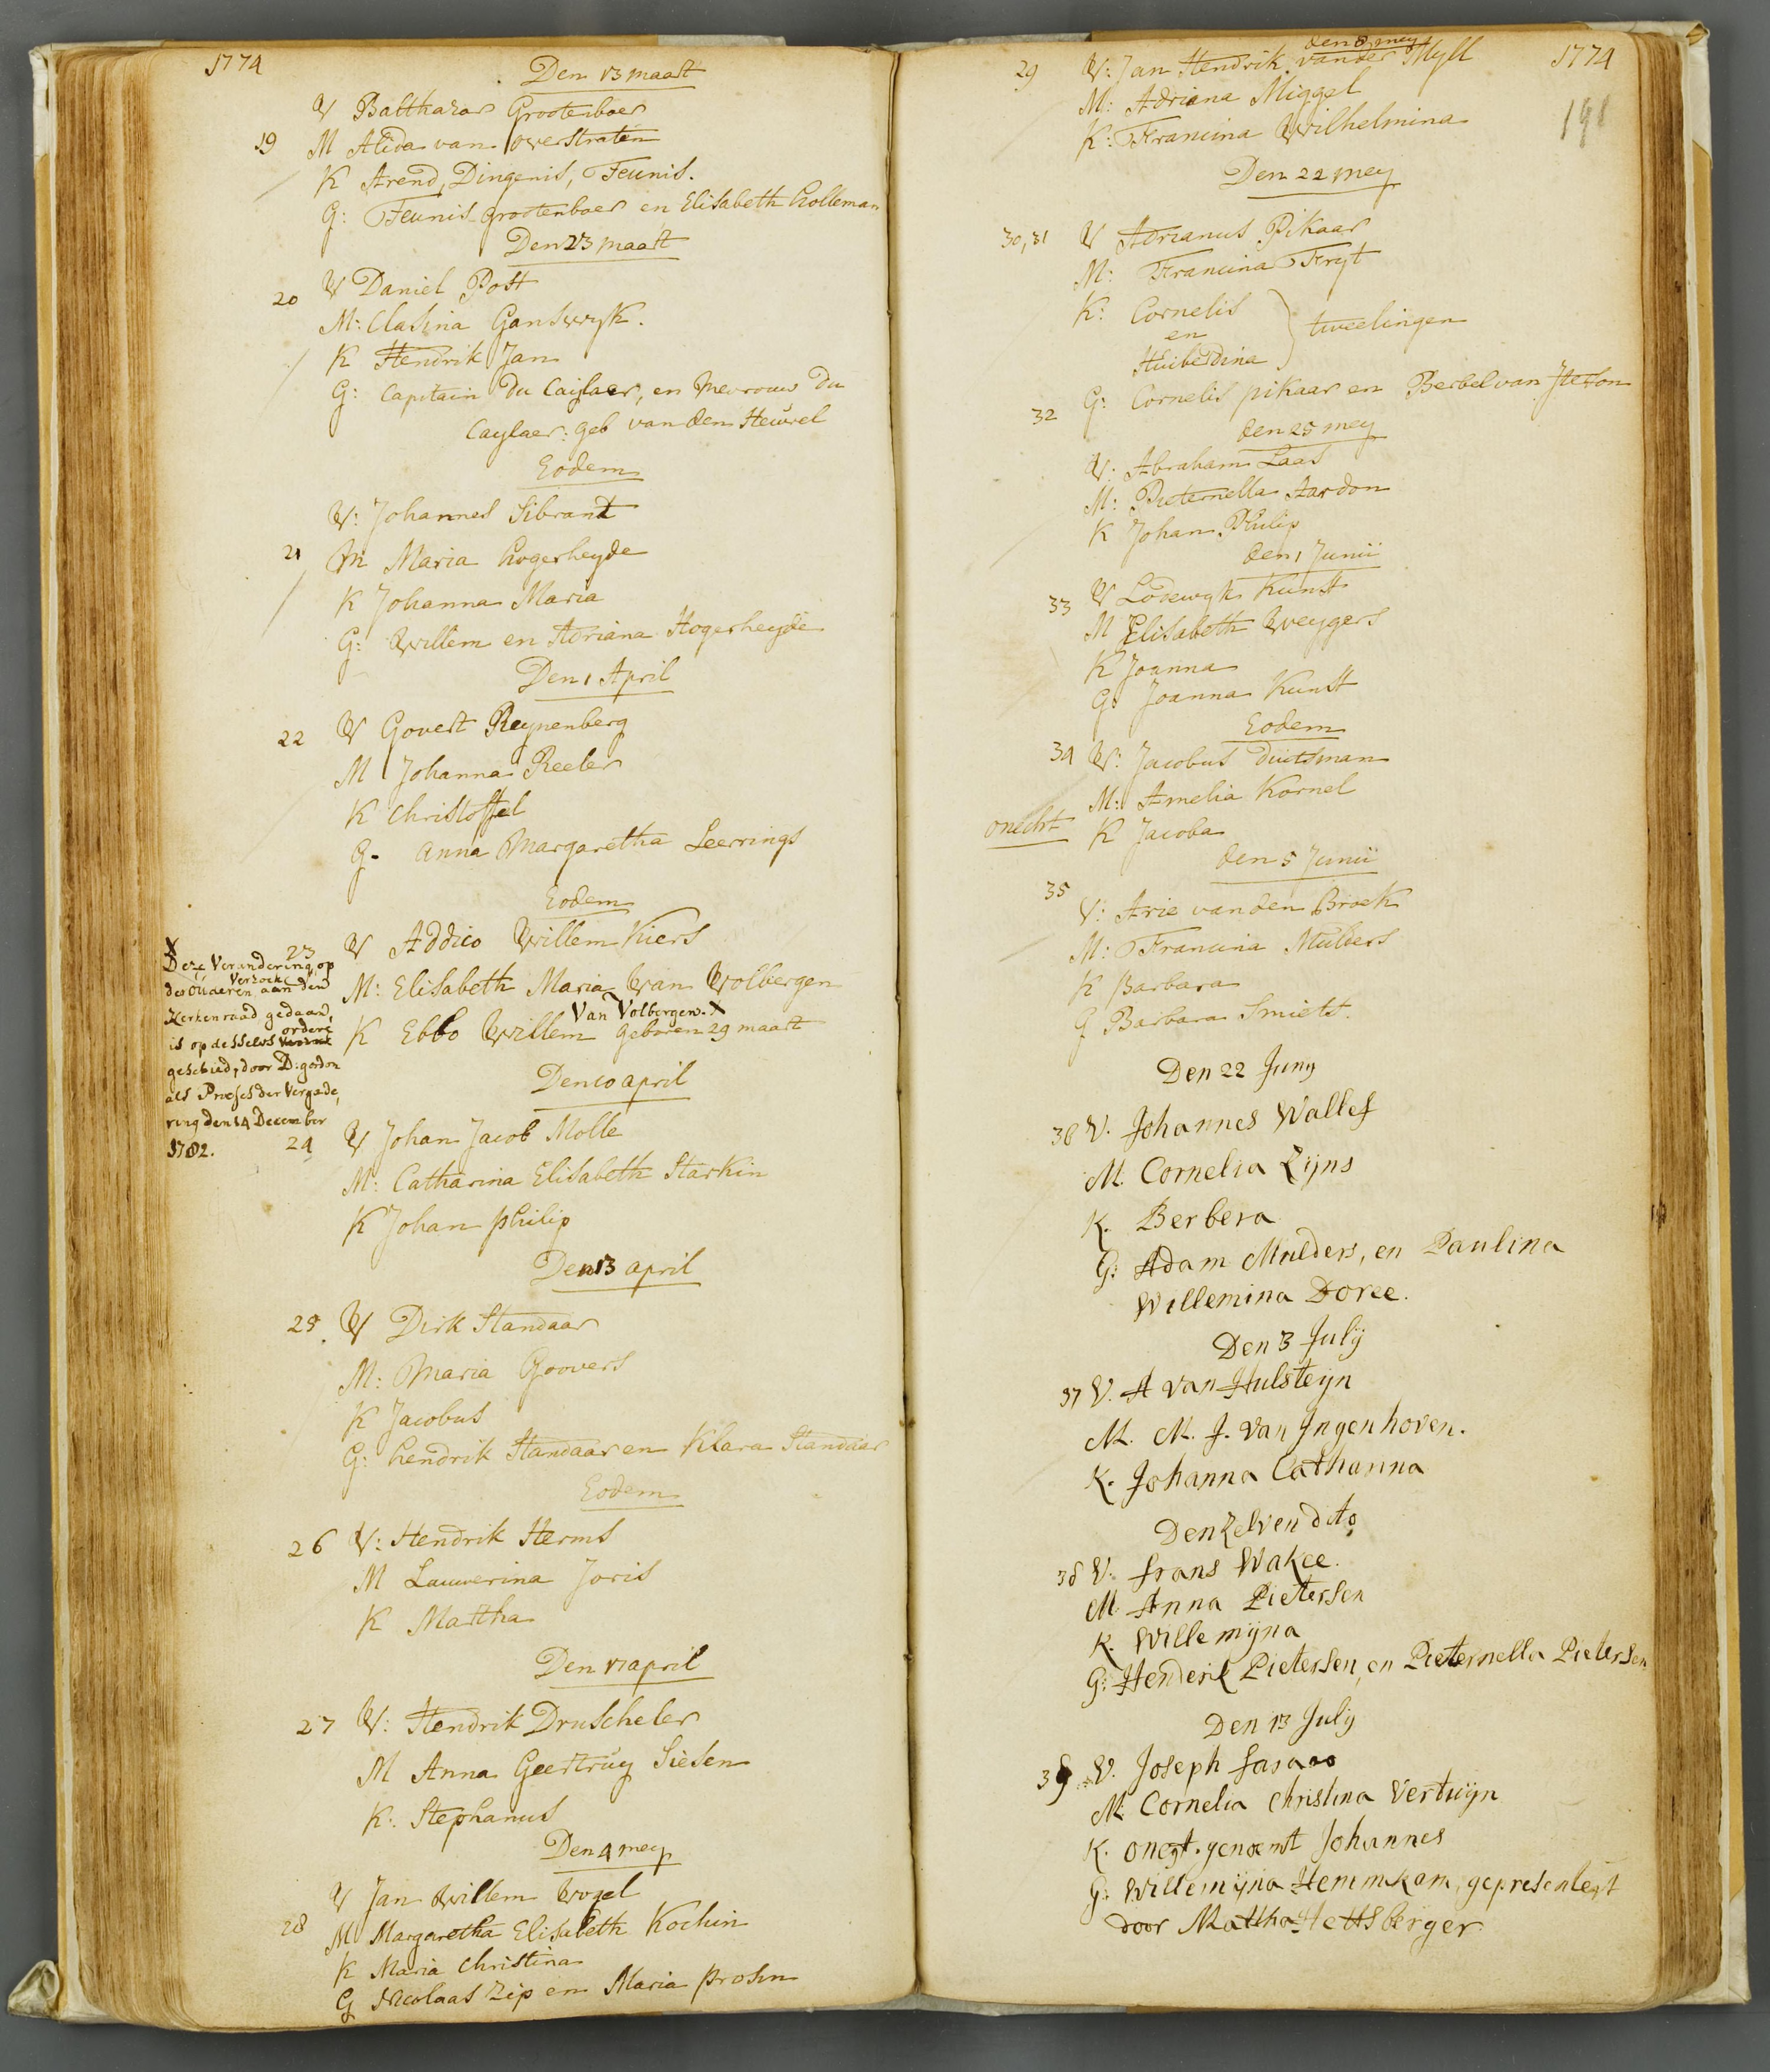 1774
Den 13 maart
V Balthazar Grootenboer
19 M Alida van Overstraten
K Arend, Dingenis, Teunis.
G: Teunis Grootenboer en Elisabeth holleman
Den 23 maart
20 V Daniel Post
M: Clasina Ganswyk.
K Hendrik Jan
G: Capitain Du Caylaer, en Mevrouw Du
Caylaer: geb van den Heuvel
Eodem
V: Johannes Sibrant
21 M Maria hogerheyde
K Johanna Maria
G: Willem en Adriana Hogerheyde
Den 1 April
22 V Govert Reynenberg
M Johanna Reeler
K Christoffel
G. Anna Margaretha Leerrings
Eodem
23 V Addico Willem Kiers
M: Elisabeth Maria Van Wolbergen
Van Volbergen. X
K Ebbo Willem geboren 29 maart
X
Deze Verandering op
Verzoek
des Ouderen aan den
Kerkenraad gedaan,
ordere
is op desselvs
geschied, door D: gordon
als Præses der Vergade,
ring den 14 December
1782.
Den 10 april
24 V Johan Jacob Molle
M: Catharina Elisabeth Starkin
K Johan philip
Den 13 april
25 V Dirk Standaar
M: Maria Goovers
K Jacobus
G: hendrik Standaar en Klara Standaar
Eodem
26 V: Hendrik Herms
M Lauwerina Joris
K Martha
Den 17 april
27 V: Hendrik Druscheler
M Anna Geertruy Siesen
K: Stephanus
Den 4 mey
V Jan Willem Vogel
28 M Margaretha Elisabeth Kochin
K Maria Christina
G Nicolaas Zip en Maria prosin
1774
191
den 8 mey
29 V: Jan Hendrik vander Myll
M: Adriana Miggel
K: Francina Wilhelmina
Den 22 mey
30, 31 V Adrianus Pikaar
M: Francina Fryt
K: Cornelis
en tweelingen
Huiberdina
G: Cornelis pikaar en Berbel van Iterson
32 den 25 mey
V: Abraham Laas
M: Pieternella Aardon
K Johan Philip
den 1 Junii
33 V Lodewyk Kunst
M Elisabeth Weygers
K Joanna
G: Joanna Kunst
Eodem
34 V: Jacobus Duitsman
M: Amelia Kornel
onecht K Jacoba
den 5 Junii
35 V: Arie van den Broek
M: Francina Mulders
K Barbara
G Barbara Smiets.
Den 22 Juny
36 V. Johannes Wallef
M. Cornelia Lijns
K. Berbera
G: Adam Mulders, en Paulina
Willemina Doree.
Den 3 July
37 V. A van Hulsteyn
M. M. J. van Ingenhoven.
K. Johanna Catharina
Den Zelven dito
38 V. frans Wakee.
M. Anna Pietersen
K. Willemijna
G: Henderik Pietersen, en Pieternella Pietersen
Den 13 July
39 V. Joseph
M. Cornelia Christina Vertuijn
K. onegt. genoemt Johannes
G: Willemijna Hemmkam, gepresenteert
door Martha Hettsberger